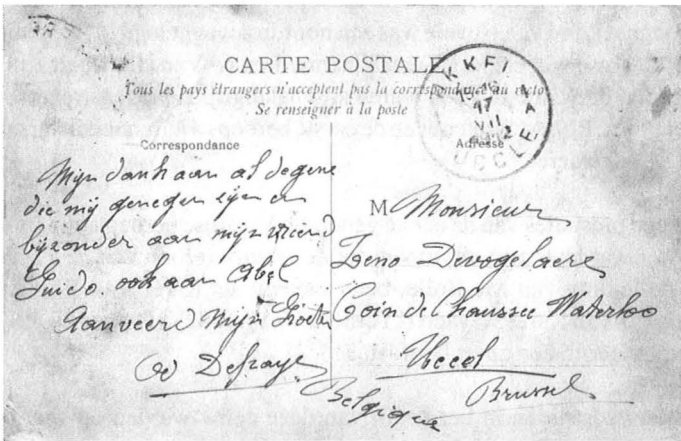 CARTE POSTALE
Tous les pays étrangers n'acceptent pas la correspondance au recto
Se renseigner à la poste
Correspondance
Mijn dank aan al degene
die mij genegen zijn en
bijzonder aan mijn vriend
Guido. ook aan Abel
Aanveerd Mijn Groeten
Od Defraye
UCCLE
17
VII
Adresse
M Monsieur
Zeno Devogelaere
Coin de Chaussee Waterloo
Uccel
Brussel
Belgique